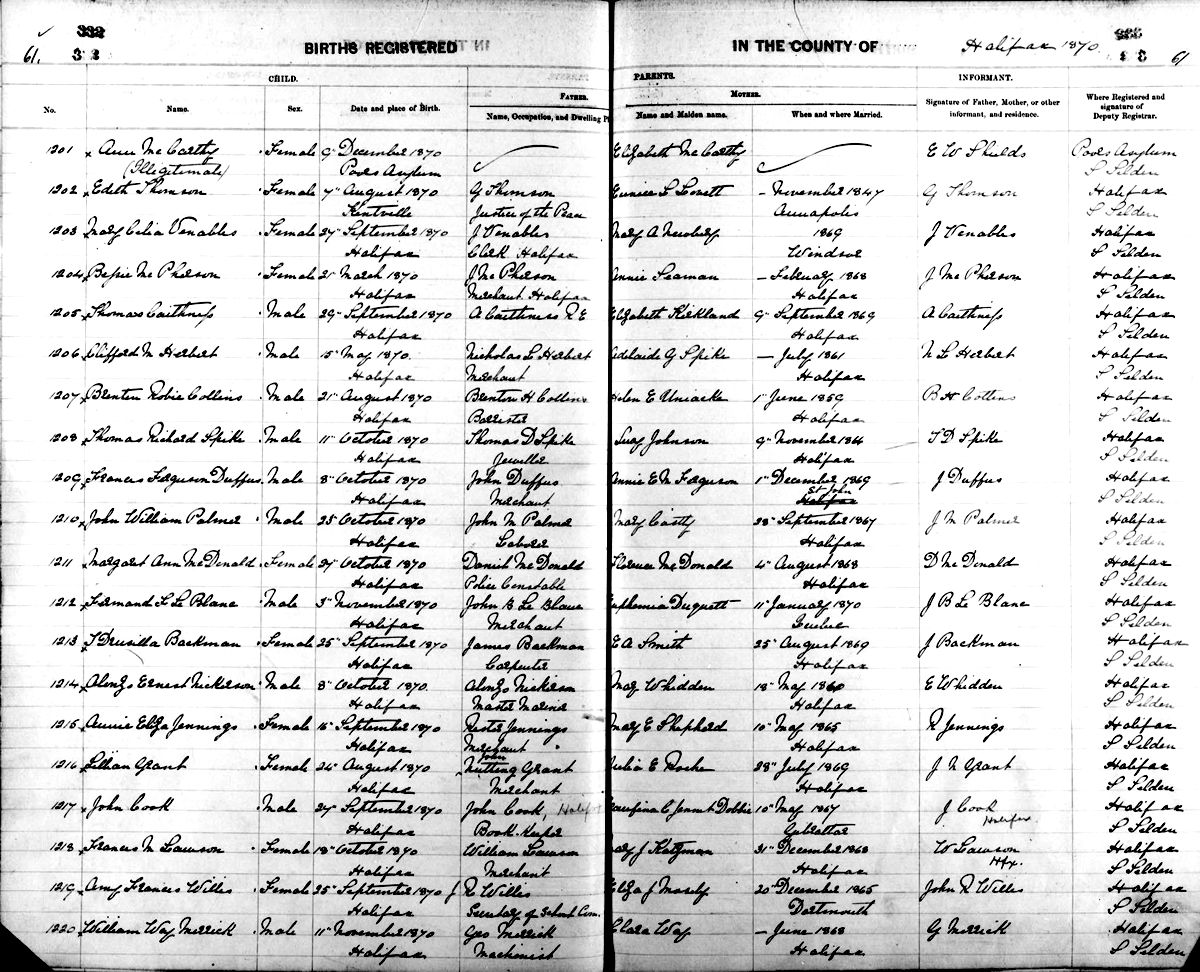 332
332
61. 3 2
BIRTHS REGISTERED
IN THE COUNTY OF Halifax 1870.
61
CHILD. PARENTS. INFORMANT.
FATHER. MOTHER.
No. Name. Sex. Date and place of Birth. Name, Occupation, and Dwelling Name and Maiden name. When and where Married. Signature of Father, Mother, or other informant, and residence. Where Registered and signature of Deputy Registrar.
1201 Ann McCarthy Female 9" December 1870 Elizabeth McCarthy E W Shields Poors Asylum
(Illegitimate) Poors Asylum S Selden
1202 Edith Thomson Female 7" August 1870 G Thomson Eunice L Lovett – November 1847 G Thomson Halifax
Kentville Justice of the Peace Annapolis S Selden
1203 Mary Celia Venables Female 27" September 1870 J Venables Mary A 1869 J Venables Halifax
Halifax Clerk Halifax Windsor S Selden
1204 Bessie McPherson Female 21" March 1870 J McPherson Annie Seaman – February 1868 J McPherson Halifax
Halifax Merchant Halifax Halifax S Selden
1205 Thomas Caithness Male 29" September 1870 A Caithness R E Elizabeth Kirkland 9" September 1869 A Caithness Halifax
Halifax Halifax S Selden
1206 Clifford M Herbert Male 15" May 1870 Nicholas L Herbert Adelaide G Spike – July 1861 N L Herbert Halifax
Halifax Merchant Halifax S Selden
1207 Brenton Robie Collins Male 21" August 1870 Brenton H Collins Helen E Uniacke 1" June 1859 B H Collins Halifax
Halifax Barrister Halifax S Selden
1208 Thomas Richard Spike Male 11" October 1870 Thomas D Spike Lucy Johnson 9" November 1864 T D Spike Halifax
Halifax Jeweller Halifax S Selden
1209 Francis Ferguson Duffus Male 8" October 1870 John Duffus Annie E M Ferguson 1" December 1869 J Duffus Halifax
Halifax Merchant St John Halifax S Selden
1210 John William Palmer Male 25" October 1870 John M Palmer Mary 28" September 1867 J M Palmer Halifax
Halifax Laborer Halifax S Selden
1211 Margaret Ann McDonald Female 27" October 1870 Daniel McDonald Florence McDonald 4" August 1868 D McDonald Halifax
Halifax Police Constable Halifax S Selden
1212 Fernand F Le Blanc Male 3" November 1870 John B Le Blanc Euphemia Duquett 11" January 1870 J B Le Blanc Halifax
Halifax Merchant Quebec S Selden
1213 T Drusilla Backman Female 25" September 1870 James Backman E A Smith 25" August 1869 J Backman Halifax
Halifax Carpenter Halifax S Selden
1214 Alonzo Ernest Nickerson Male 8" October 1870 Alonzo Nickerson May Whidden 18" May 1860 E Whidden Halifax
Halifax Master Marine Halifax S Selden
1215 Annie Eliza Jennings Female 16" September 1870 Jennings Mary E Shepherd 10" May 1865 R Jennings Halifax
Halifax Merchant Halifax S Selden
1216 Lillian Grant Female 24" August 1870 John Nutting Grant Julia E Roche 28" July 1869 J N Grant Halifax
Halifax Merchant Halifax S Selden
1217 John Cook Male 27" September 1870 John Cook, Halifax Dobbie 10" May 1867 J Cook Halifax Halifax
Halifax Book-Keeper Gibraltar S Selden
1218 Francis M Lawson Female 18" October 1870 William Lawson Mary J Katzman 31" December 1868 W Lawson Hfx. Halifax
Halifax Merchant Halifax S Selden
1219 Amy Frances Willis Female 25" September 1870 J R Willis Eliza J Mosely 20" December 1865 John R Willis Halifax
Halifax Secretary of School Com. Dartmouth S Selden
1220 William Way Merrick Male 11" November 1870 Geo Merrick Clara Way – June 1868 G Merrick Halifax
Halifax Machinist Halifax S Selden